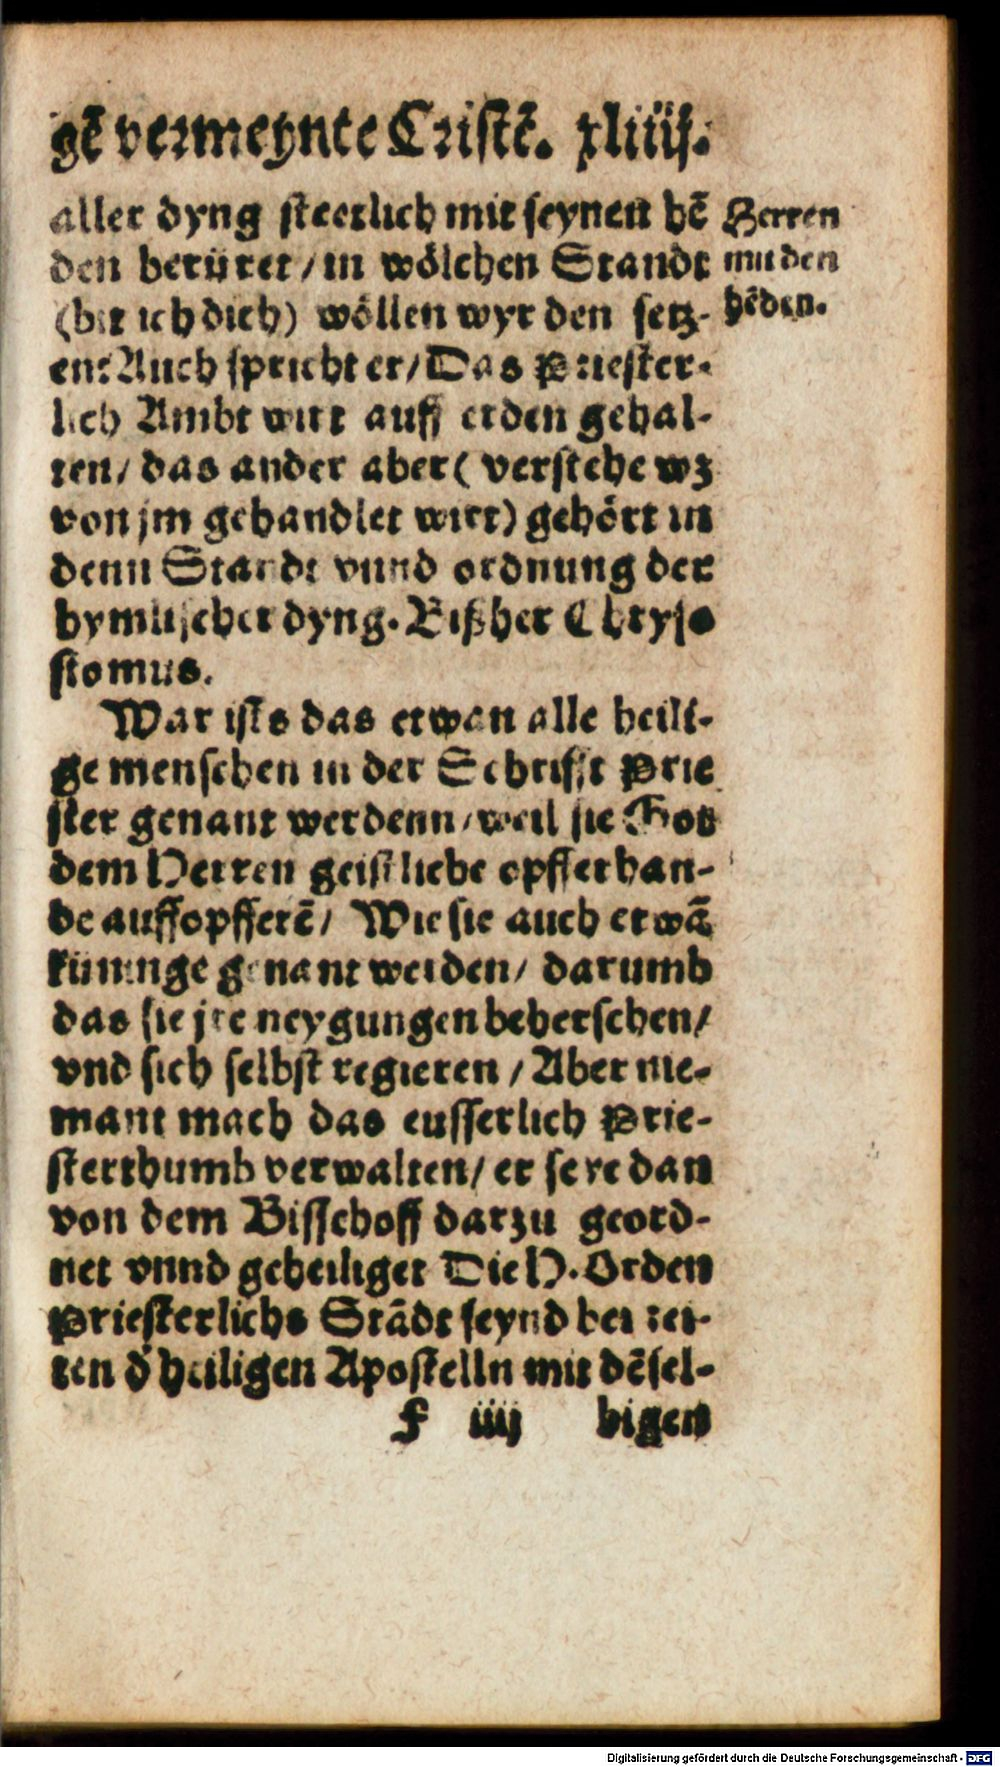 gē vermeynte Cristē. xliiij.
aller dyng steetlich mit seynen hē
den berüret / in wölchen Standt
(bit ich dich) wöllen wyr den setz-
en: Auch spricht er / Das Priester-
lich Ambt wirt auff erden gehal-
ten / das ander aber ( verstehe wz
von jm gehandlet wirt) gehört in
denn Standt vnnd ordnung der
hymlischer dyng. Bißher Chryso
stomus.
War ists das etwan alle heili-
ge menschen in der Schrifft Prie
ster genant werdenn / weil sie Got
dem Herren geistliche opffer han-
de auffopfferē / Wie sie auch etwā
küninge genant werden / darumb
das sie jre neygungen beherschen /
vnd sich selbst regieren / Aber nie-
mant mach das eusserlich Prie-
sterthumb verwalten / er seye dan
von dem Bisschoff darzu geord-
net vnnd geheiliget Die H. Orden
Priesterlichs Stādt seynd bei zei-
ten d' heiligen Apostelln mit dēsel-
f iiij bigen
Herren
mit den
hēden.
Digitalisierung gefördert durch die Deutsche Forschungsgemeinschaft - DFG